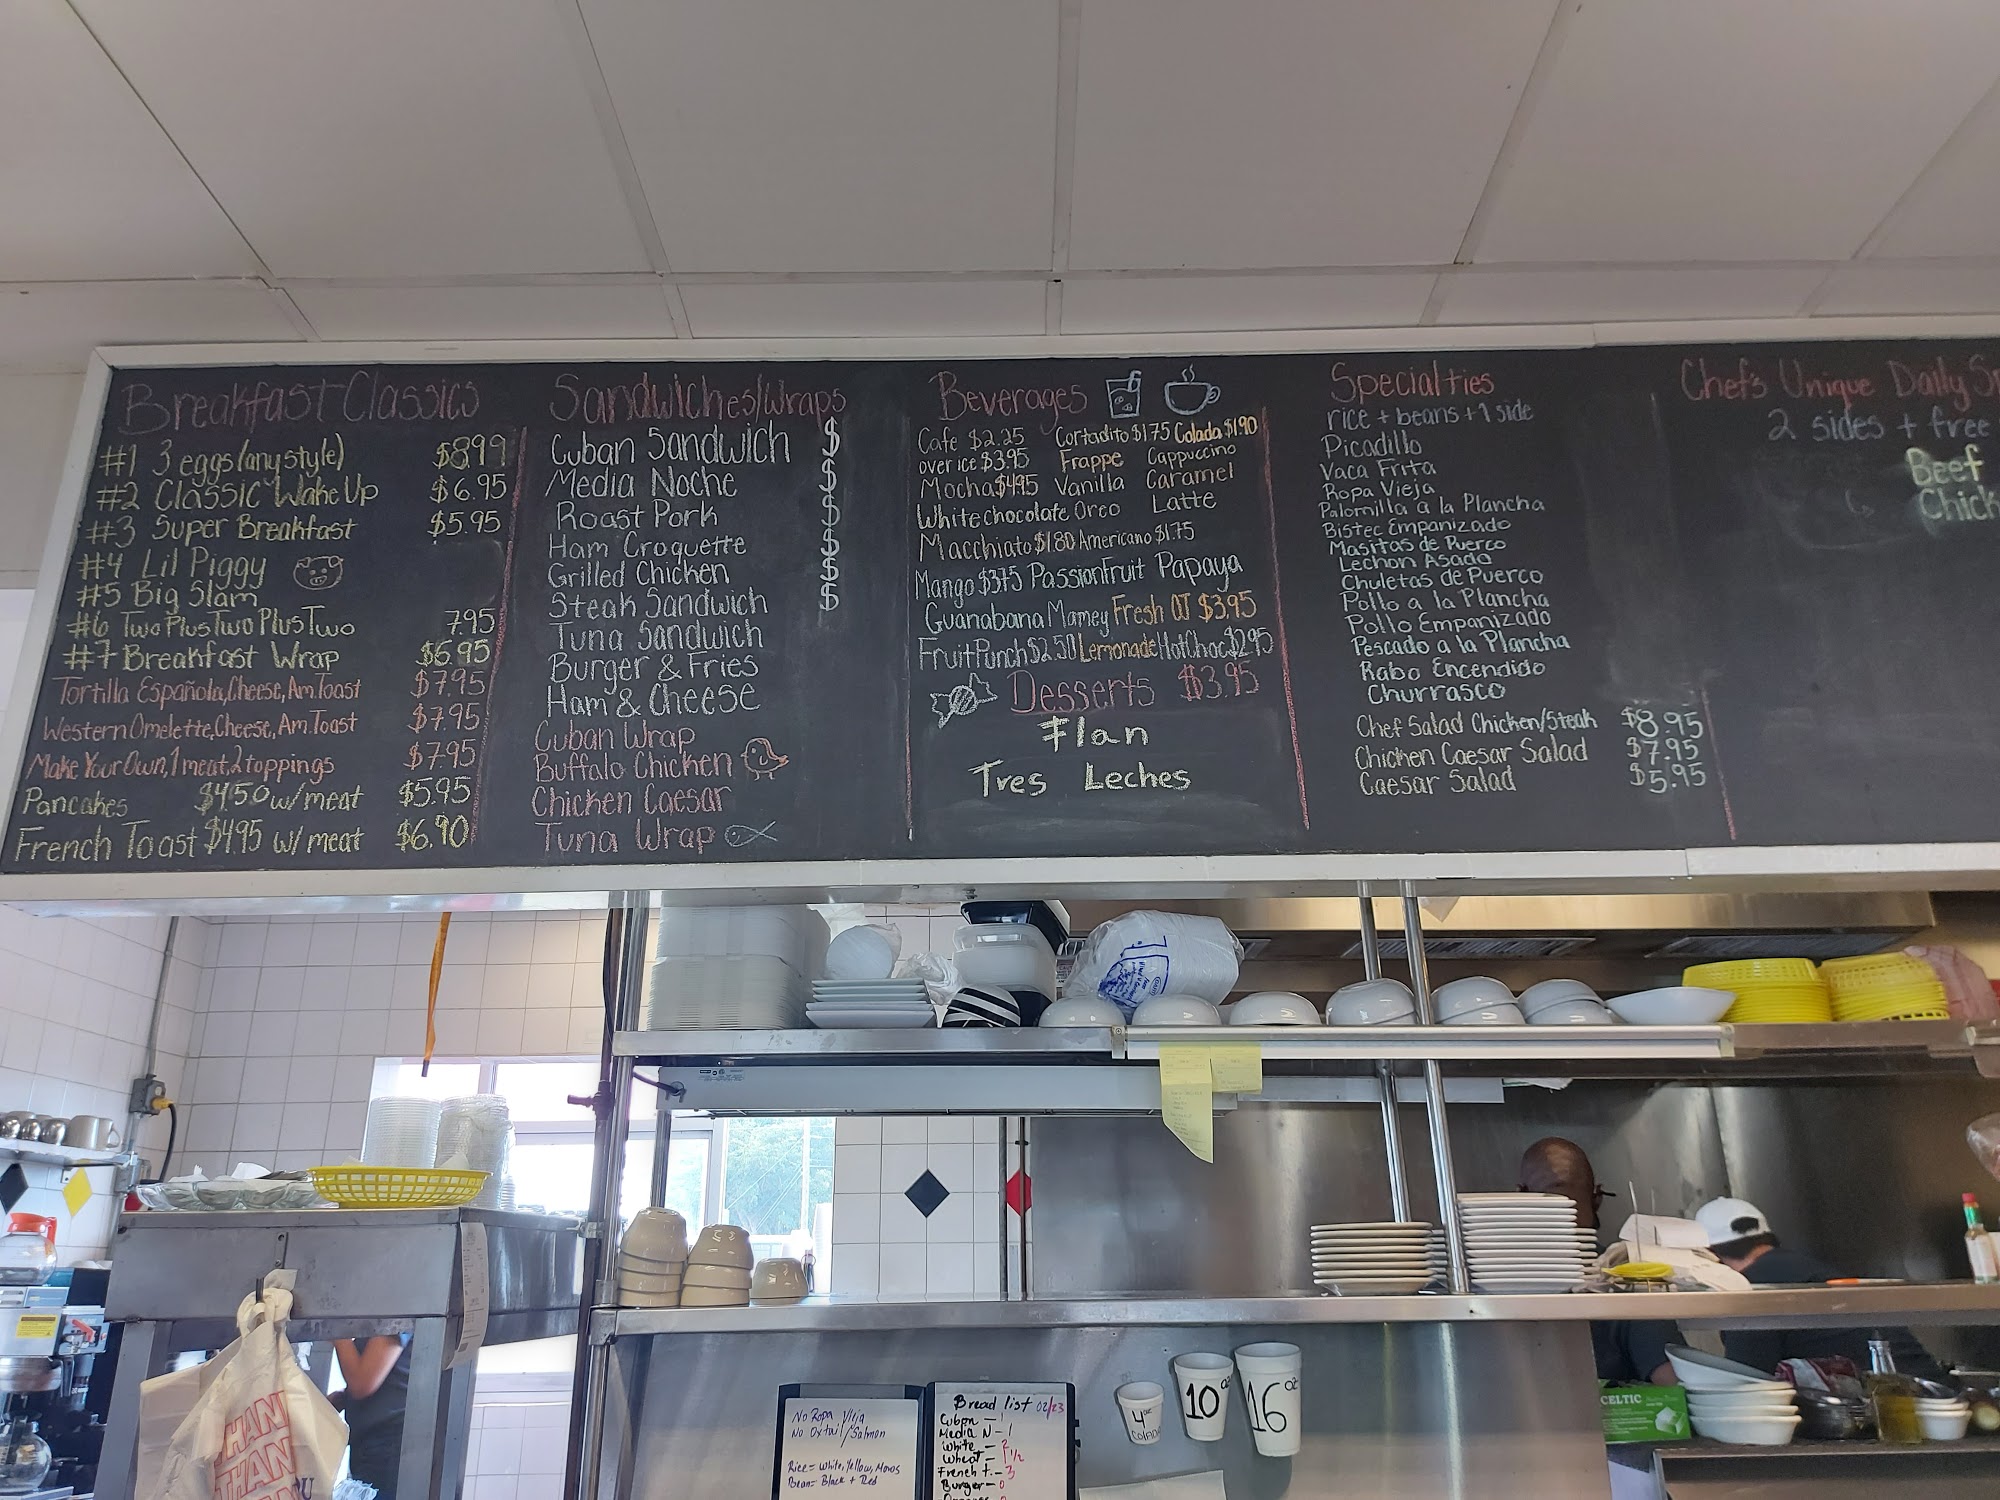 Breakfast Classics
#1 3 eggs (any style) $8.99
#2 Classic Wake Up $6.95
#3 Super Breakfast $5.95
#4 Lil Piggy
#5 Big Slam
#6 Two Plus Two Plus Two 7.95
#7 Breakfast Wrap $6.95
Tortilla Española, Cheese, Am. Toast $7.95
Western Omelette, Cheese, Am. Toast $7.95
Make Your Own, 1 meat, 2 toppings $7.95
Pancakes $4.50 w/meat $5.95
French Toast $4.95 w/ meat $6.90
Sandwiches/Wraps
Cuban Sandwich $
Media Noche $
Roast Pork $
Ham Croquette $
Grilled Chicken $
Steak Sandwich $
Tuna Sandwich
Burger & Fries
Ham & Cheese
Cuban Wrap
Buffalo Chicken
Chicken Caesar
Tuna Wrap
Beverages
Cafe $2.25 Cortadito $1.75 Colada $1.90
over ice $3.95 Frappe Cappuccino
Mocha $4.95 Vanilla Caramel
White chocolate Oreo Latte
Macchiato $1.80 Americano $1.75
Mango $3.75 Passion Fruit Papaya
Guanabana Mamey Fresh OJ $3.95
Fruit Punch $2.50 Lemonade Hot Choc $2.95
Desserts $3.95
Flan
Tres Leches
Specialties
rice + beans + 1 side
Picadillo
Vaca Frita
Ropa Vieja
Palomilla a la Plancha
Bistec Empanizado
Masitas de Puerco
Lechon Asado
Chuletas de Puerco
Pollo a la Plancha
Pollo Empanizado
Pescado a la Plancha
Rabo Encendido
Churrasco
Chef Salad Chicken/Steak $8.95
Chicken Caesar Salad $7.95
Caesar Salad $5.95
Chef's Unique Daily
2 sides + free
Beef
Chick
No Ropa Vieja
No Oxtail/Salmon
Rice = White, Yellow, Moros
Bean = Black + Red
Bread list 02/23
Cuban - 1
Media N - 1
White - 2
Wheat - 1 1/2
French t. - 3
Burger - 0
4 oz
COLADA
10 oz
16 oz
CELTIC